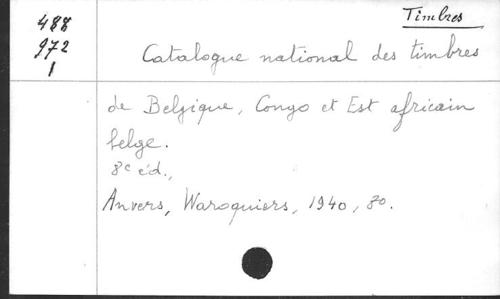 Timbres
488
972
1
Catalogue national des timbres
de Belgique, Congo et Est africain
belge.
8e éd.,
Anvers, Waroquiers, 1940, 8o.